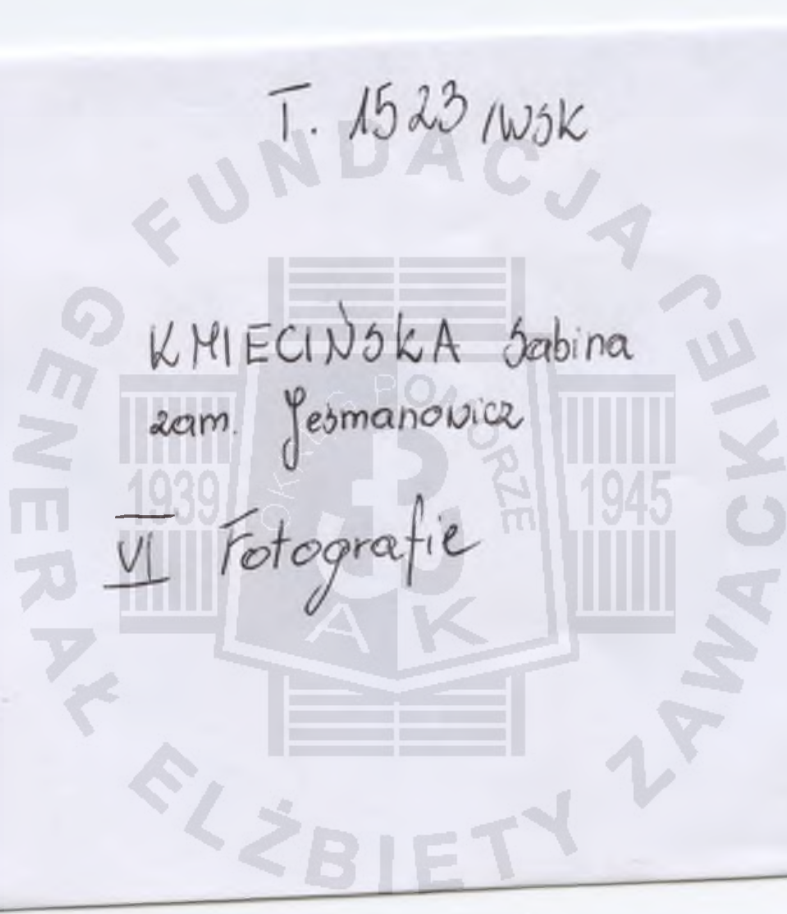 T. 1523 /WSK
KMIECIŃSKA Sabina
zam. Jesmanowicz
VI Fotografie
FUNDACJA
GENERAŁ ELŻBIETY ZAWACKIEJ
OKRĘG POMORZE
1939
1945
AK